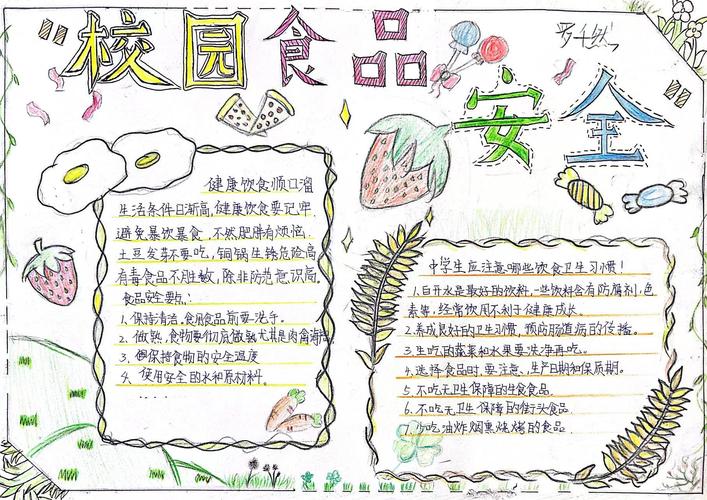 校园食品
安全
健康饮食顺口溜
生活条件日渐高,健康饮食要记牢.
避免暴饮暴食,不然肥胖有烦恼.
土豆发芽不要吃,铜锅生锈危险高,
有毒食品不胜数,除非防范意识高.
食品安全要点:
1.保持清洁,食用食品前要洗手。
2.做熟,食物要彻底做熟尤其是肉禽海鲜
3.保持食物的安全温度
4.使用安全的水和原材料。
......
中学生应注意哪些饮食卫生习惯!
1.白开水是最好的饮料,一些饮料含有防腐剂,色
素等,经常饮用不利于健康成长。
2.养成良好的卫生习惯,预防肠道病的传播。
3.生吃的蔬菜和水果要洗净再吃。
4.选择食品时,要注意,生产日期和保质期。
5.不吃无卫生保障的生食食品.
6.不吃无卫生保障的街头食品
7.少吃油炸烟熏烧烤的食品